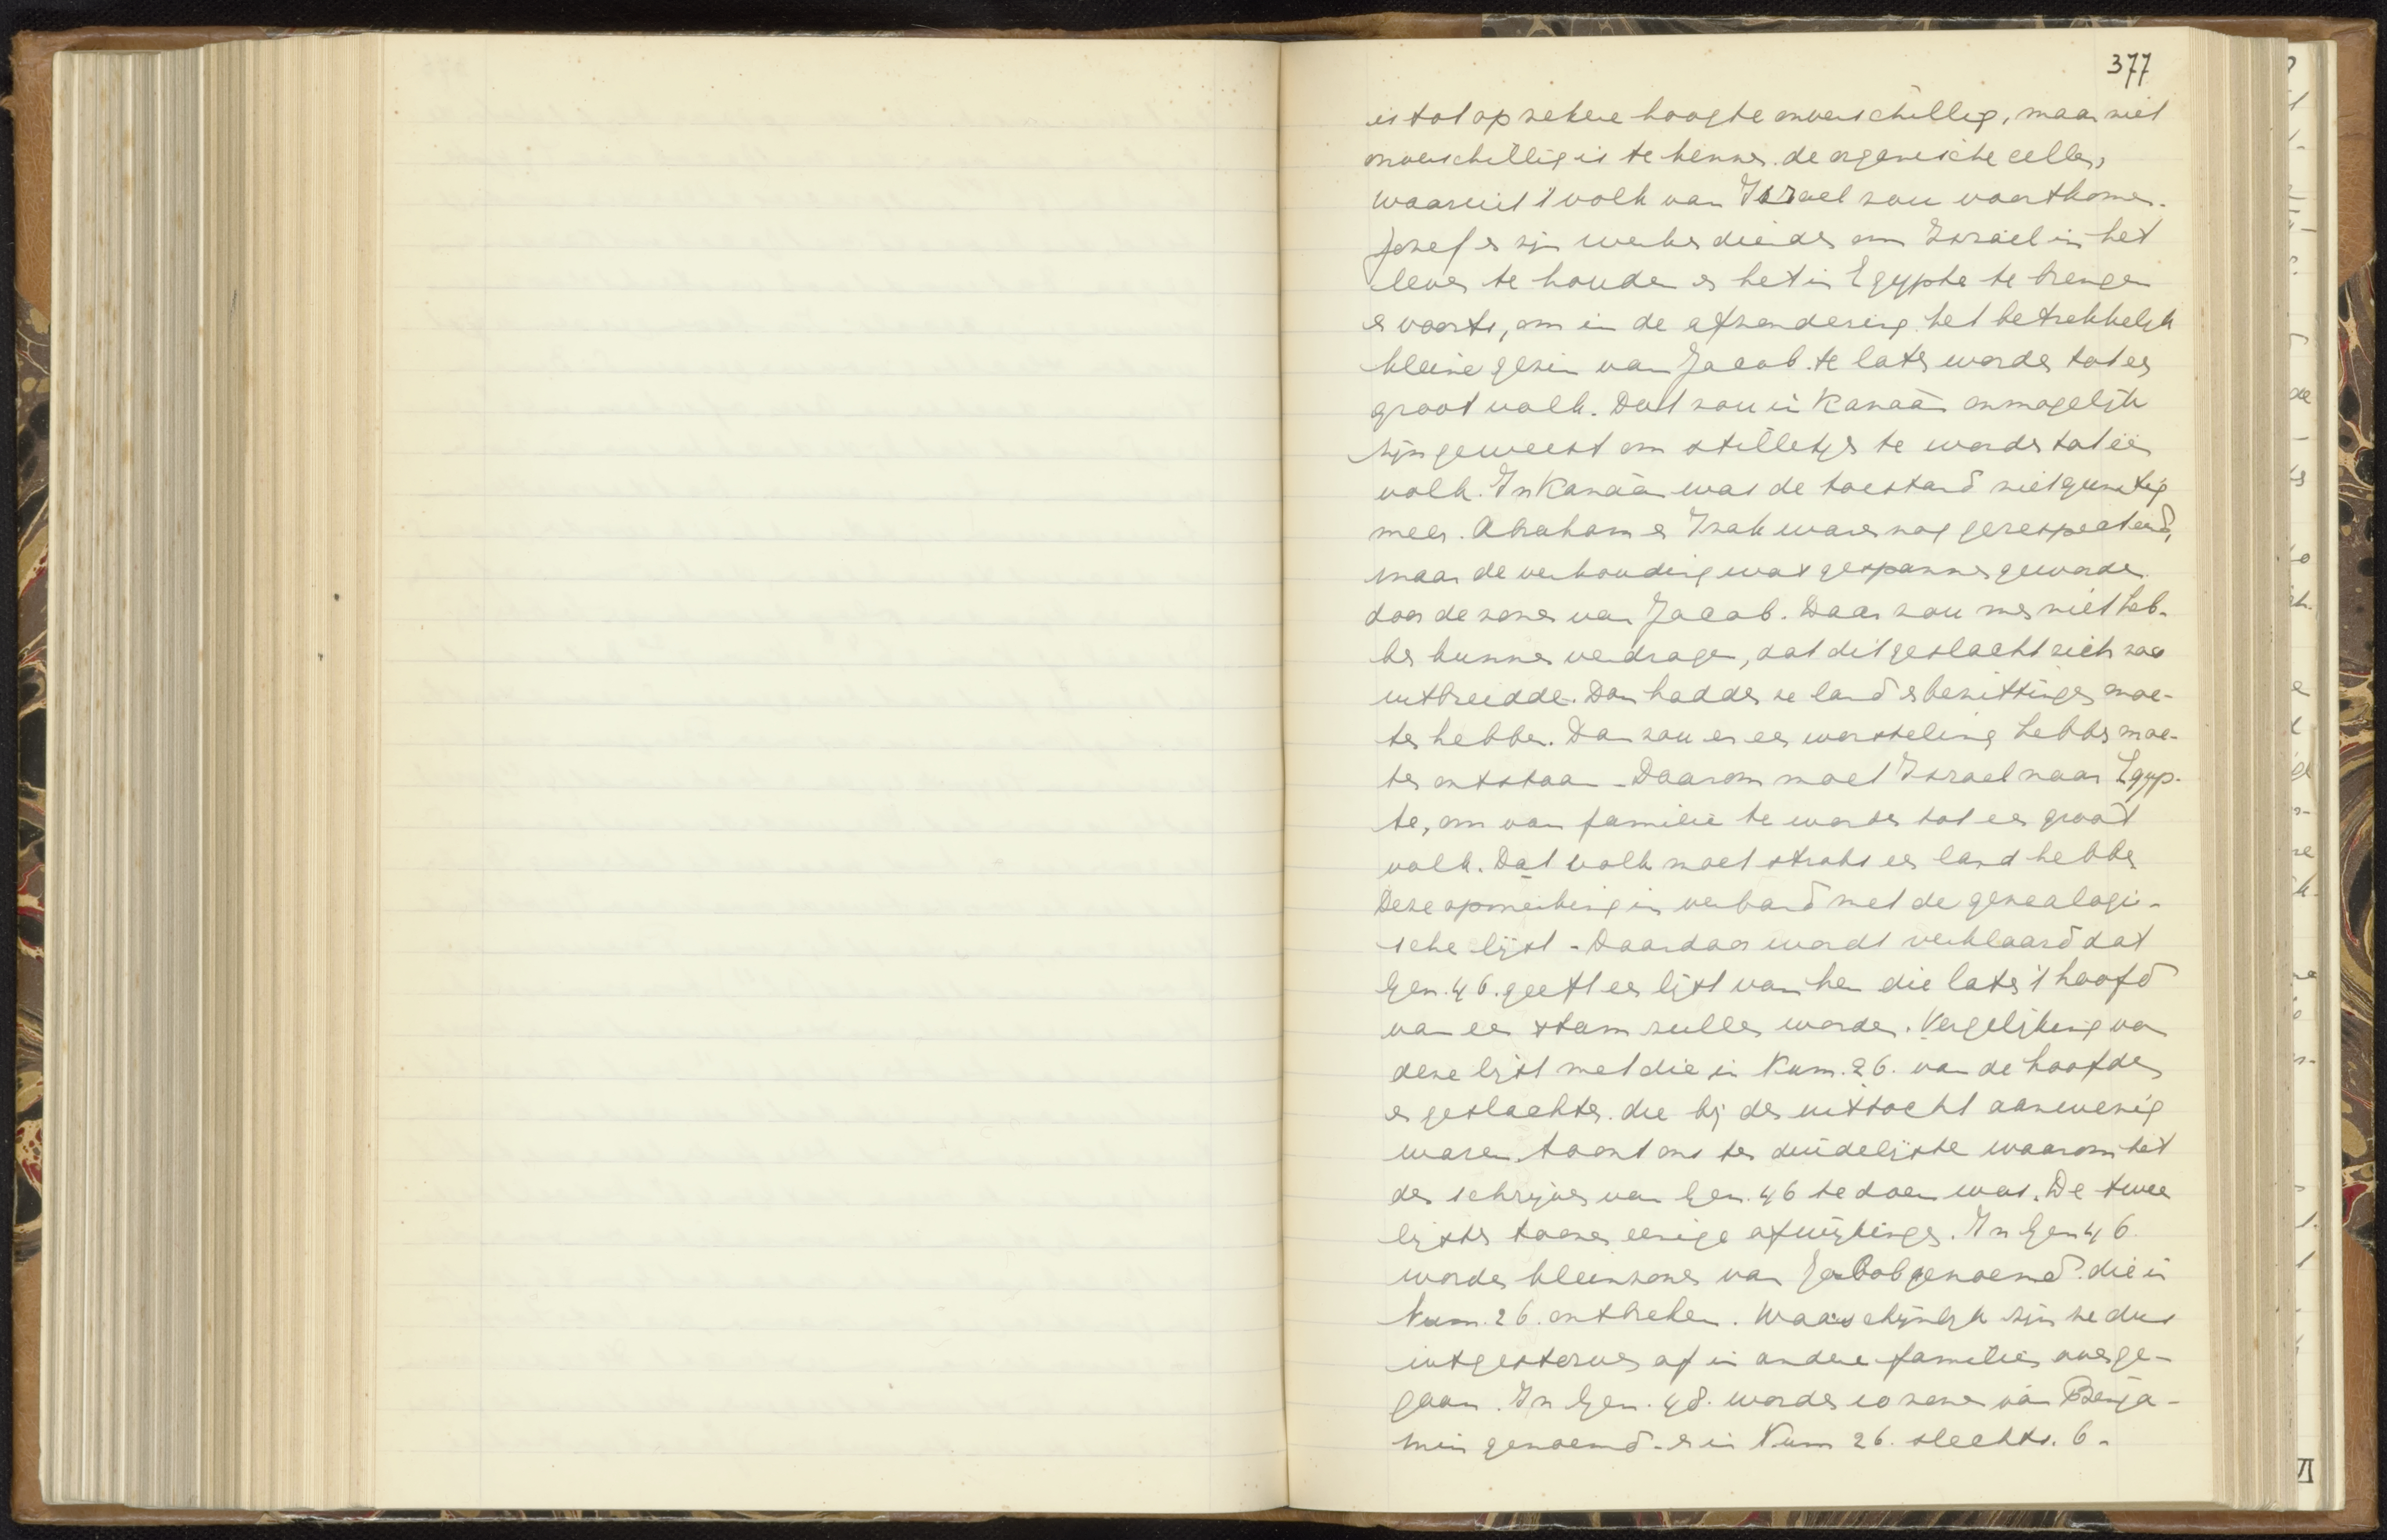 377
is tot op zekere hoogte onverschillig, maar niet
onverschillig is te kennen de organische cellen,
waaruit 't volk van Israel zou voortkomen.
Jozef en zijn werken dienden om Israël in het
leven te houden en het in Egypte te brengen
en voorts, om in de afzondering het betrekkelijk
kleine gezin van Jacob te laten worden tot een
groot volk. Dat zou in Kanaän onmogelijk
zijn geweest om stilletjes te worden tot één
volk. In Kanaän was de toestand niet gunstig
meer. Abraham en Izak waren nog gerespecteerd,
maar de verhouding was gespannen geworden
door de zonen van Jacob. Daar zou men niet heb-
ben kunnen verdragen, dat dit geslacht zich zoo
uitbreidde. Dan hadden ze land en bezittingen moe-
ten hebben. Dan zou er een worsteling hebben moe-
ten ontstaan. Daarom moet Israel naar Egyp-
te, om van familie te worden tot een groot
volk. Dat volk moet straks een land hebben.
Deze opmerking in verband met de genealogi-
sche lijst. Daardoor wordt verklaard dat
Gen. 46. geeft een lijst van hen die later 't hoofd
van een stam zullen worden. Vergelijking van
deze lijst met die in Num. 26. van de hoofden
en geslachten die bij den uittocht aanwezig
waren toont ons ten duidelijkste waarom het
den schrijver van Gen. 46 te doen was. De twee
lijsten toonen eenige afwijkingen. In Gen 46
worden kleinzonen van Jacob genoemd die in
Num. 26. ontbreken. Waarschijnlijk zijn ze dus
uitgestorven of in andere families overge-
gaan. In Gen. 48. worden 10 zonen van Benja-
min genoemd en in Num 26. slechts. 6.
VI